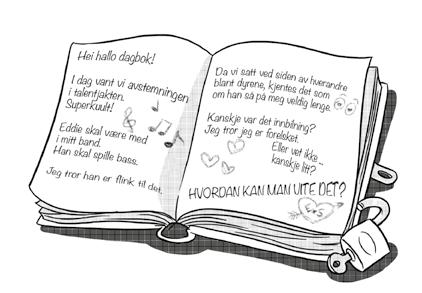 Hei hallo dagbok!
I dag vant vi avstemningen
i talentjakten.
Superkuult!
Eddie skal være med
i mitt band.
Han skal spille bass.
Jeg tror han er flink til det.
Da vi satt ved siden av hverandre
blant dyrene, kjentes det som
om han så på meg veldig lenge.
Kanskje var det innbilning?
Jeg tror jeg er forelsket.
Eller vet ikke...
kanskje litt?
HVORDAN KAN MAN VITE DET?
E+S